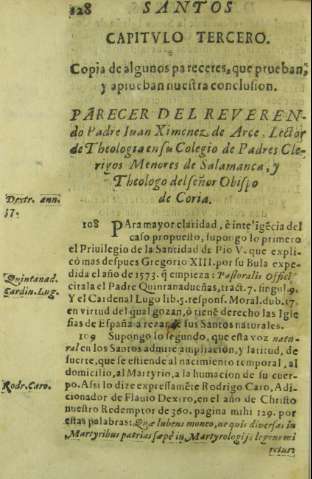 128 SANTOS
CAPITVLO TERCERO.
Copia de algunos pareceres, que prueban,
y aprueban nuestra conclusion.
PARECER DEL REVEREN-
do Padre Iuan Ximenez de Arce, Lector
de Theologia en su Colegio de Padres Cle-
rigos Menores de Salamanca, y
Theologo del señor Obispo
de Coria.
Dextr. ann.
57.
108 PAra mayor claridad, è intẽligẽcia del
caso propuesto, supongo lo primero
el Priuilegio de la Santidad de Pio V. que expli-
cò mas despues Gregorio XIII. por su Bula expe-
dida el año de 1573. q̃ empieza: Pastoralis Officij
Quintanad.
Cardin. Lug.
citala el Padre Quintanadueñas, tract. 7. singul. 9.
Y el Cardenal Lugo lib. 5. respons. Moral. dub. 17.
en virtud del qual gozan, ò tienẽ derecho las Igle
sias de España a rezar de sus Santos naturales.
109 Supongo lo segundo, que esta voz natu-
ral en los Santos admite ampliacion, y latitud, de
suerte, que se estiende al nacimiento temporal, al
domicilio, al Martyrio, a la humacion de su cuer-
Rodr. Caro.
po. Asi lo dize expressamẽte Rodrigo Caro, Adi-
cionador de Flauio Dextro, en el año de Christo
nuestro Redemptor de 360. pagina mihi 129. por
estas palabras: Quæ lubens moneo, ne quis diuersas in
Martyribus patrias sæpè in Martyrologijs legens mi
retur